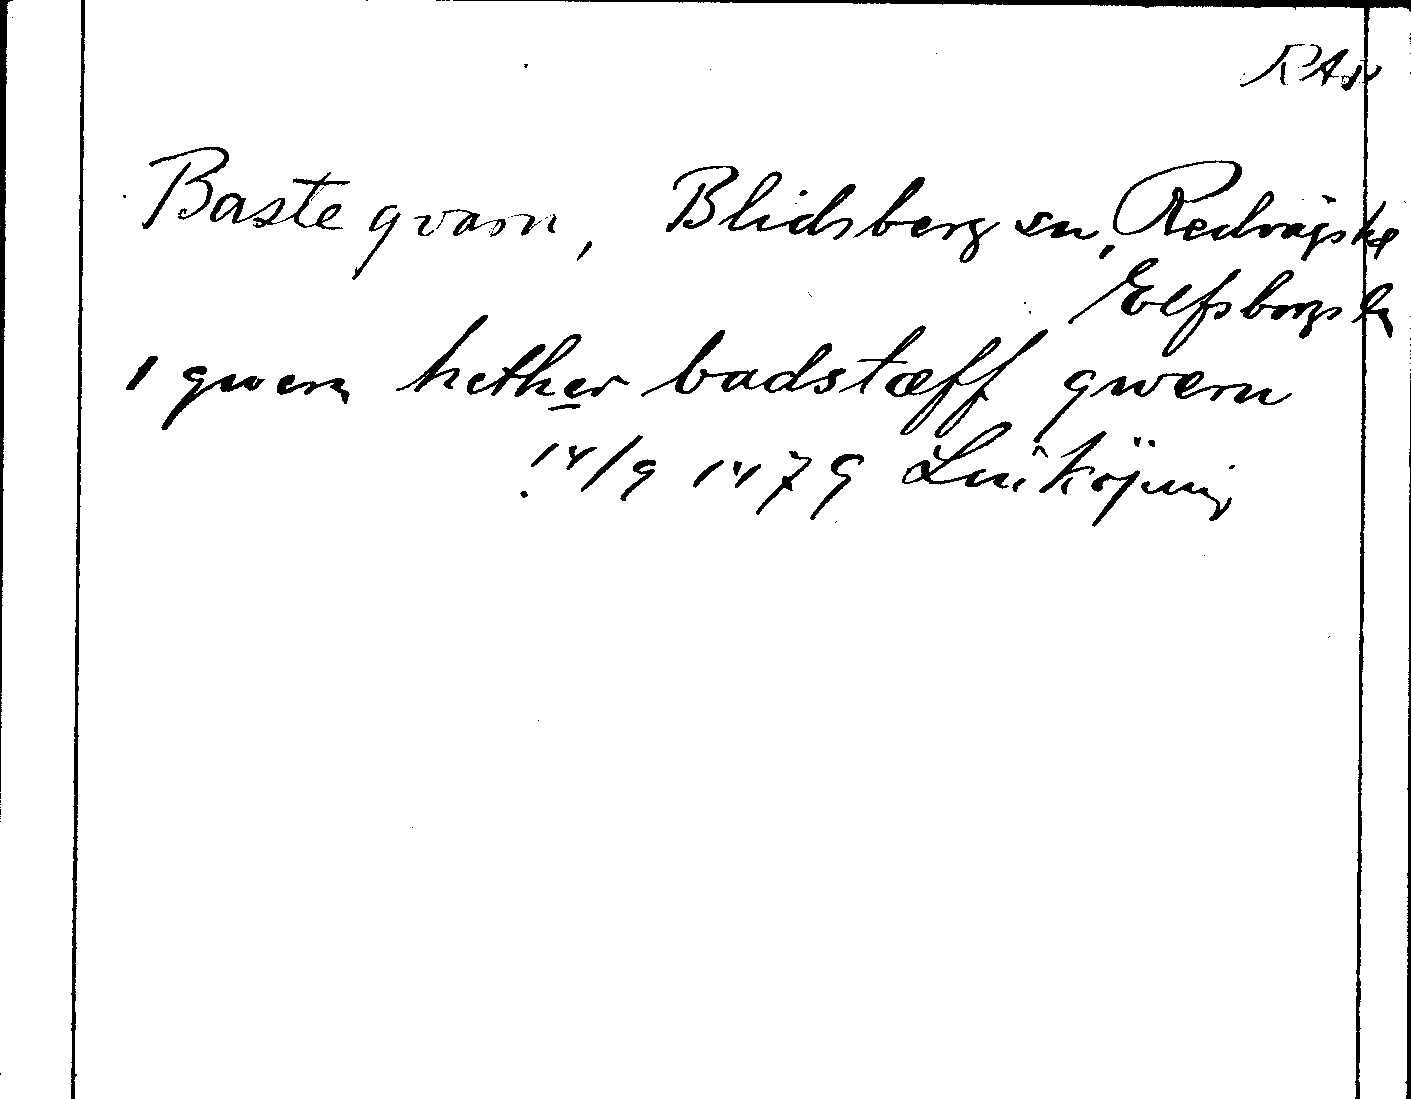 RAp
Bastegvarn, Blidsberg sn, Redvägs hd
Elfsborgs ln
1 qwern hether badstæff qwern
14/9 1479 Linköping